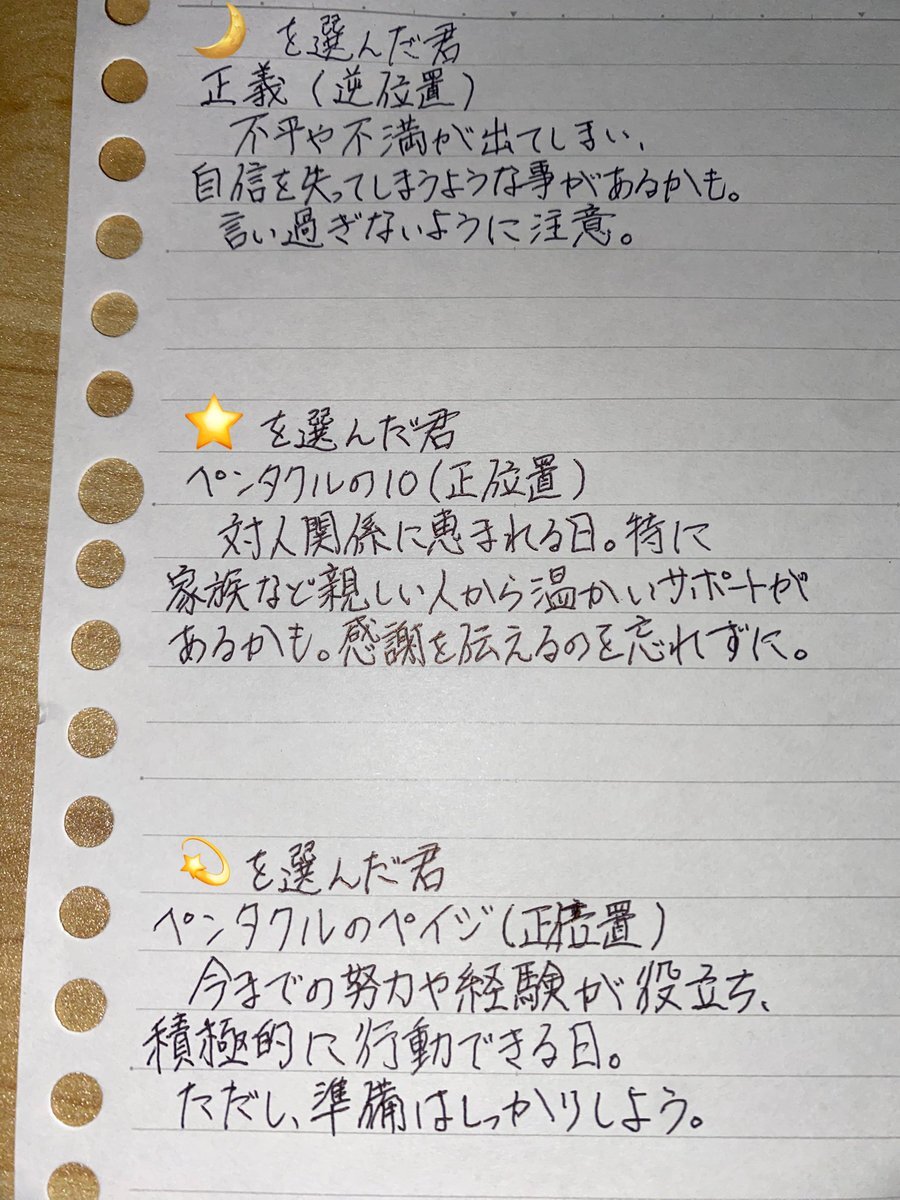 🌙を選んだ君
正義(逆位置)
不平や不満が出てしまい、
自信を失ってしまうような事があるかも。
言い過ぎないように注意。
⭐を選んだ君
ペンタクルの10(正位置)
対人関係に恵まれる日。特に
家族など親しい人から温かいサポートが
あるかも。感謝を伝えるのを忘れずに。
💫を選んだ君
ペンタクルのペイジ(正位置)
今までの努力や経験が役立ち、
積極的に行動できる日。
ただし、準備はしっかりしよう。